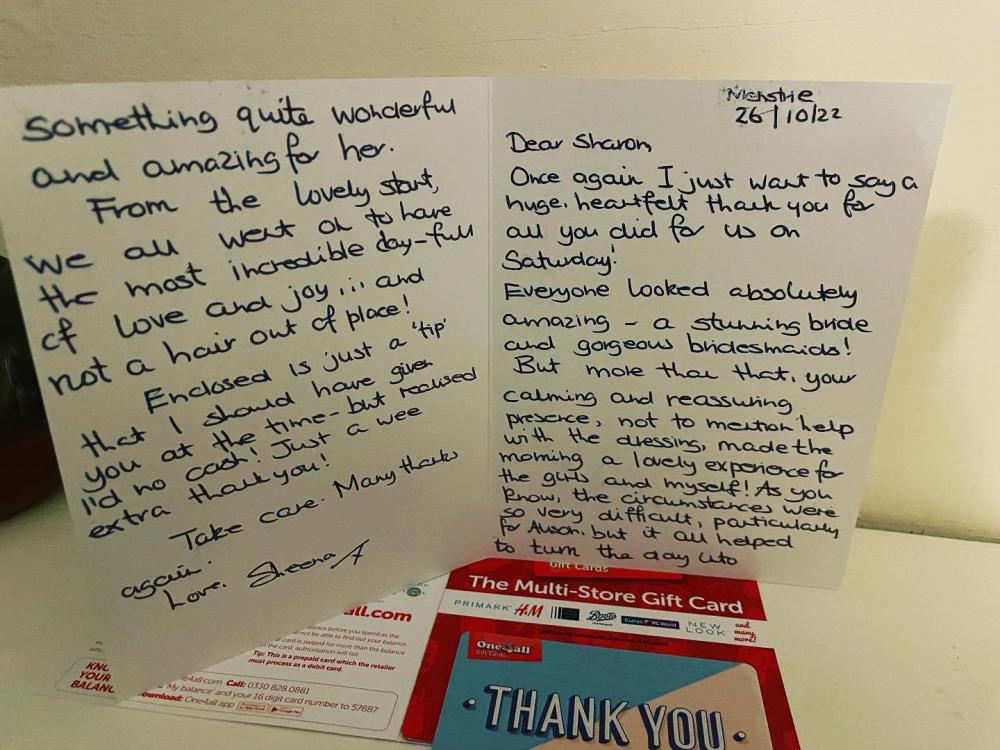 Menstrie
26/10/22
Dear Sharon
Once again I just want to say a
huge, heartfelt thank you for
all you did for us on
Saturday!
Everyone looked absolutely
amazing - a stunning bride
and gorgeous bridesmaids!
But more than that, your
calming and reassuring
presence, not to mention help
with the dressing, made the
morning a lovely experience for
the girls and myself! As you
know, the circumstances were
so very difficult, particularly
for Alison. but it all helped
to turn the day into
Something quite wonderful
and amazing for her.
From the lovely start,
we all went on to have
the most incredible day-full
of love and joy ... and
not a hair out of place!
Enclosed is just a 'tip'
that I should have given
you at the time - but realised
I'd no cash! Just a wee
extra thank you!
Take care. Many thanks
again.
Love, Sheena x
all.com
balance before you spend as the
not be able to find out your balance
card is swiped for more than the balance
the card, authorisation will fail.
Tip: This is a prepaid card which the retailer
must process as a debit card.
KNO
YOUR
BALANC
4all.com Call: 0330 828 0881
'My balance' and your 16 digit card number to 57887
Download: One4all app
Google Play
Gift Cards
The Multi-Store Gift Card
PRIMARK H&M Boots Currys PC World NEW LOOK and many more!
One4all
Gift Cards
THANK YOU